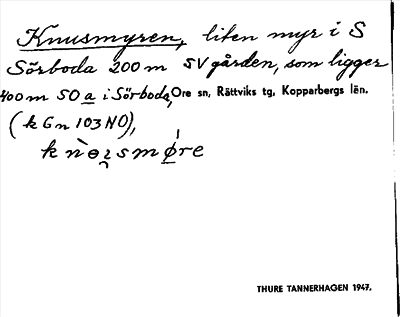 Knusmyren, liten myr i S
Sörboda 200 m SV gården, som ligger
400 m SO a i Sörboda, Ore sn, Rättviks tg, Kopparbergs län.
(k Gn 103 NO),
THURE TANNERHAGEN 1947.